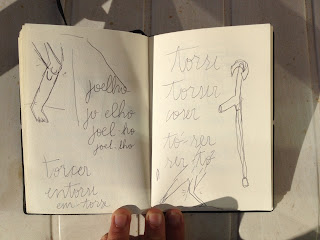 joelho
jo elho
joel-ho
joel-lho
torcer
entorsi
em-torse
torsi
torser
coser
to-ser
ser tó